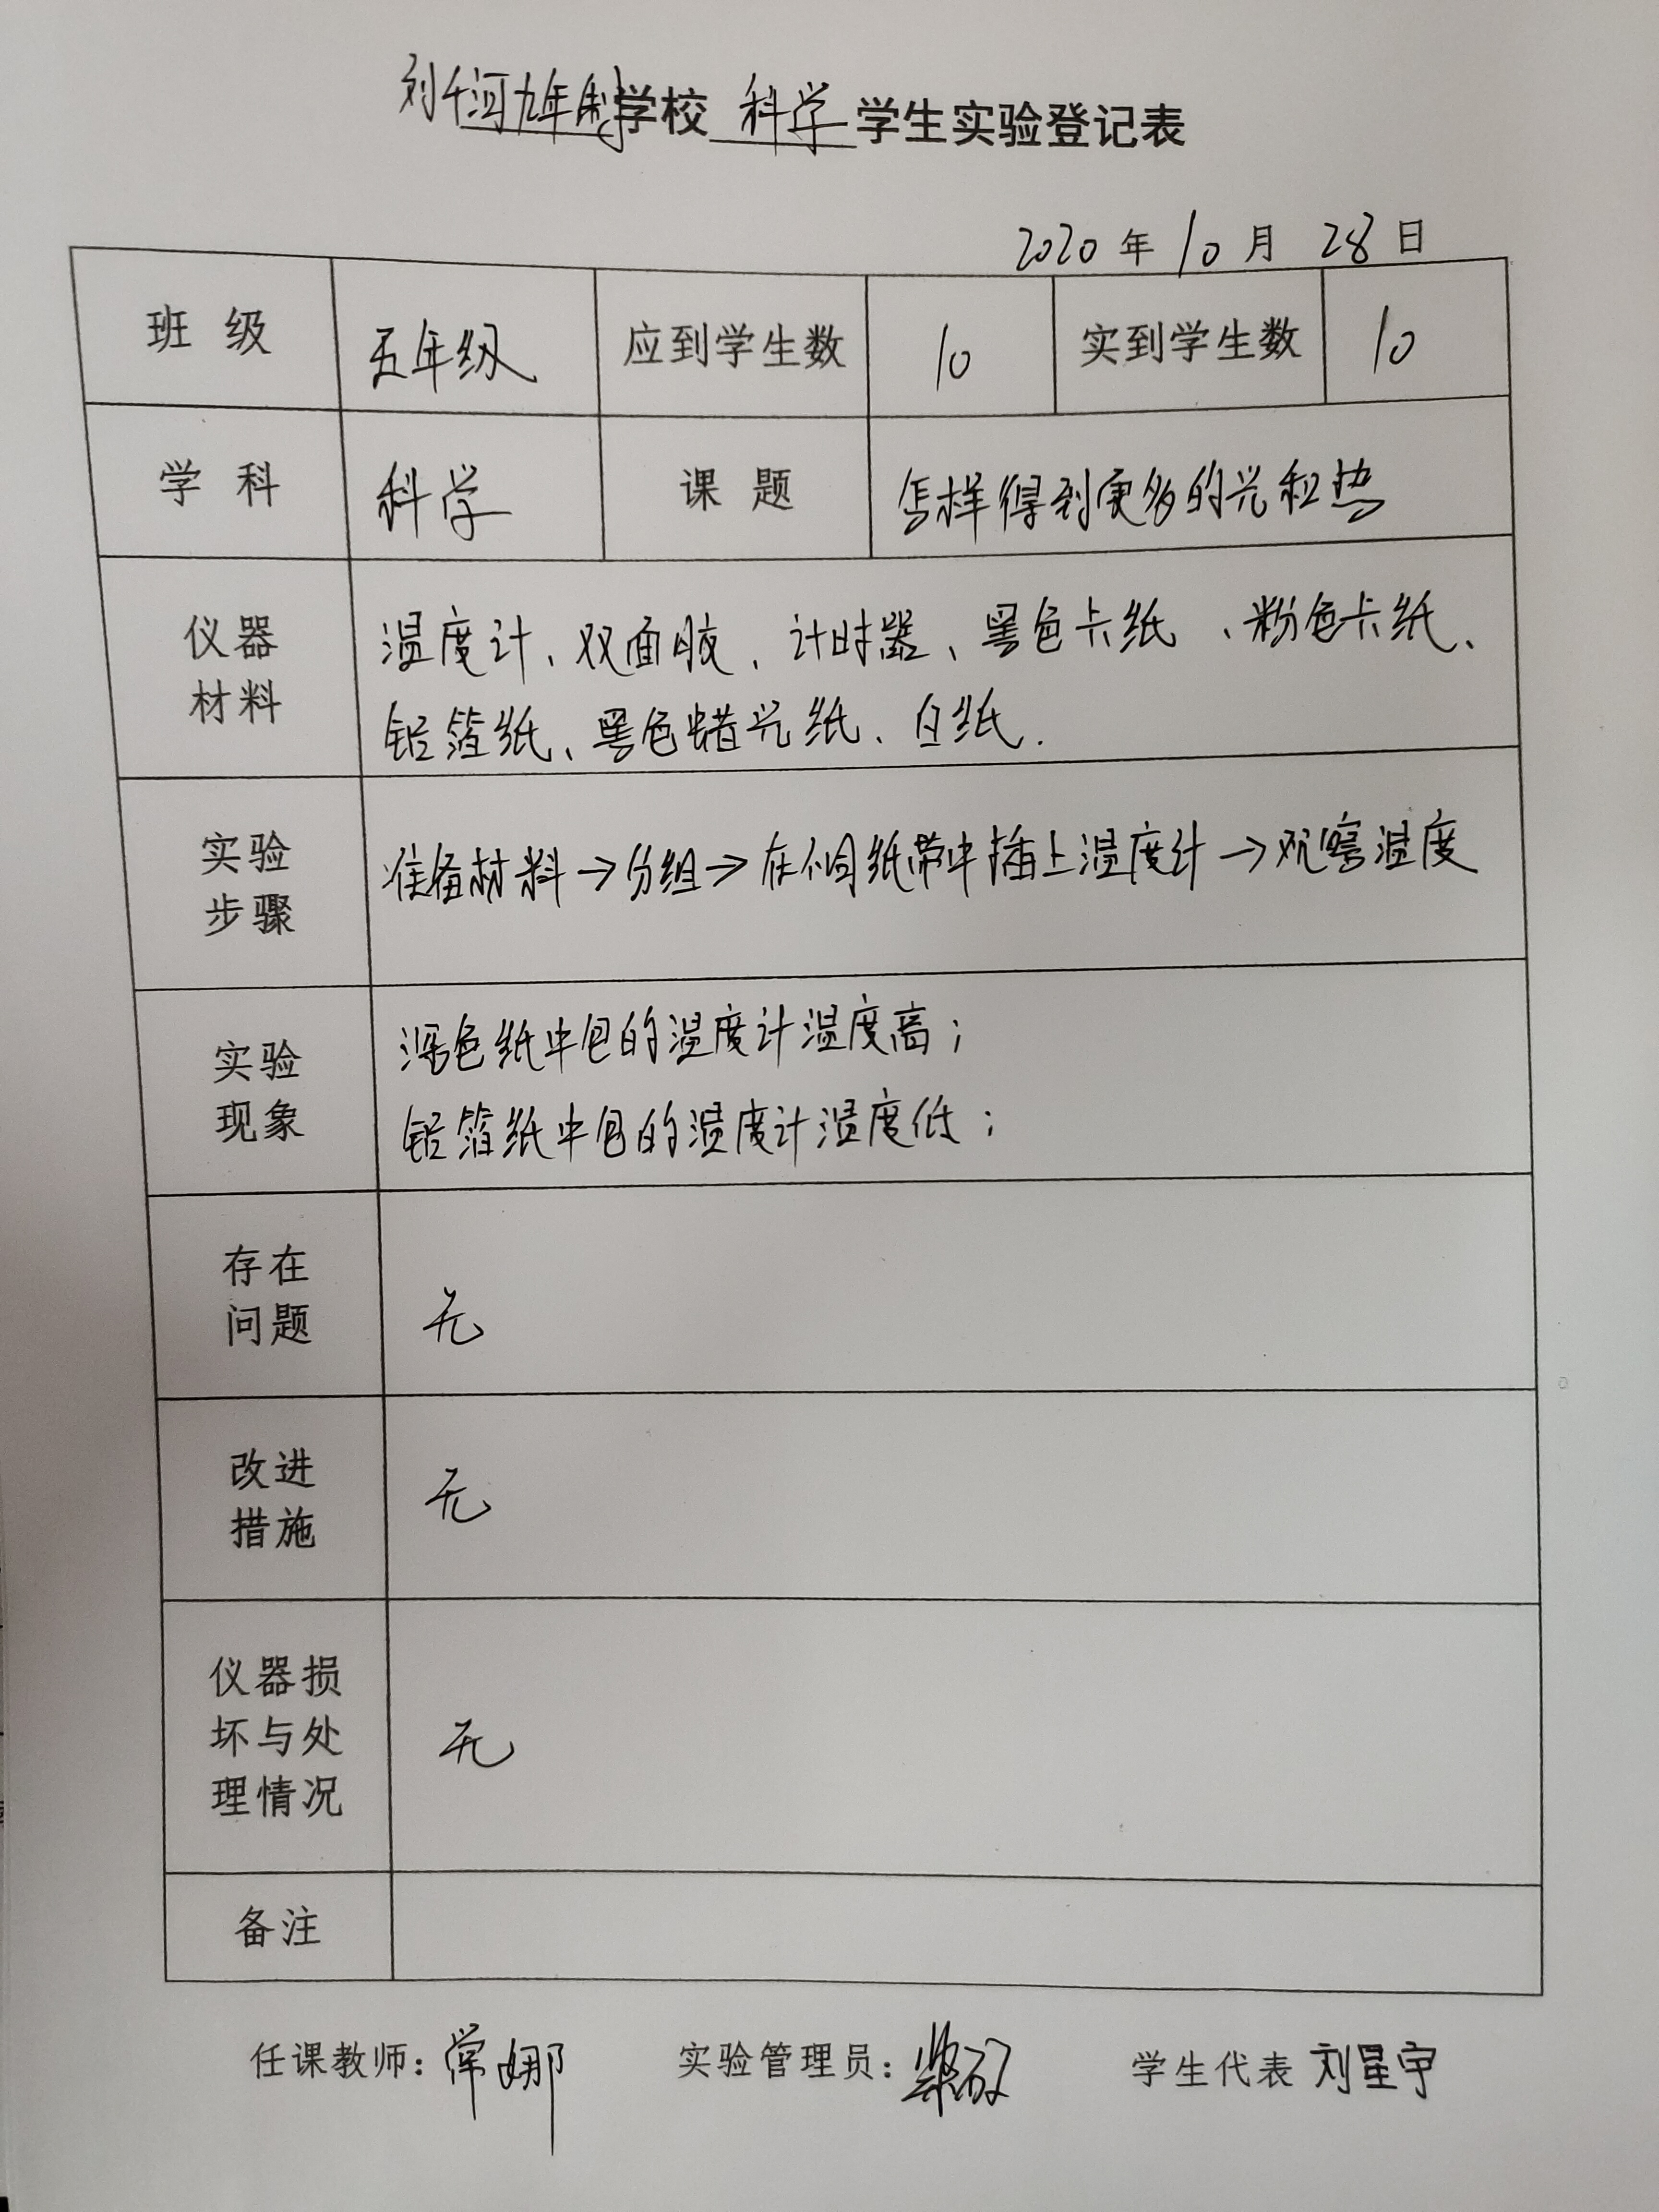 刘千河九年制学校 科学 学生实验登记表
2020 年 10 月 28 日
班 级 五年级 应到学生数 10 实到学生数 10
学 科 科学 课 题 怎样得到更多的光和热
仪器
材料
温度计、双面胶、计时器、黑色卡纸、粉色卡纸、
铝箔纸、黑色蜡光纸、白纸.
实验
步骤
准备材料→分组→在不同纸带中插上温度计→观察温度
实验
现象
深色纸中包的温度计温度高;
铝箔纸中包的温度计温度低;
存在
问题
无
改进
措施
无
仪器损
坏与处
理情况
无
备注
任课教师: 常娜 实验管理员: 学生代表 刘星宇